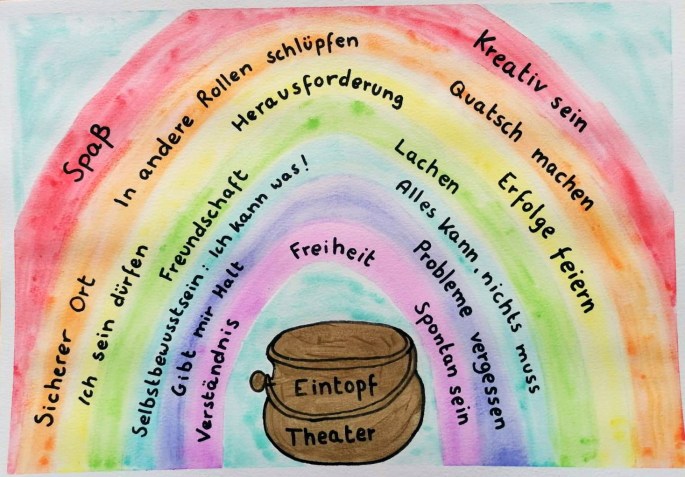 Spaß
Kreativ sein
Sicherer Ort
In andere Rollen schlüpfen
Quatsch machen
Ich sein dürfen
Herausforderung
Erfolge feiern
Freundschaft
Lachen
Selbstbewusstsein: Ich kann was!
Alles kann, nichts muss
Gibt mir Halt
Probleme vergessen
Verständnis
Freiheit
Spontan sein
Eintopf
Theater